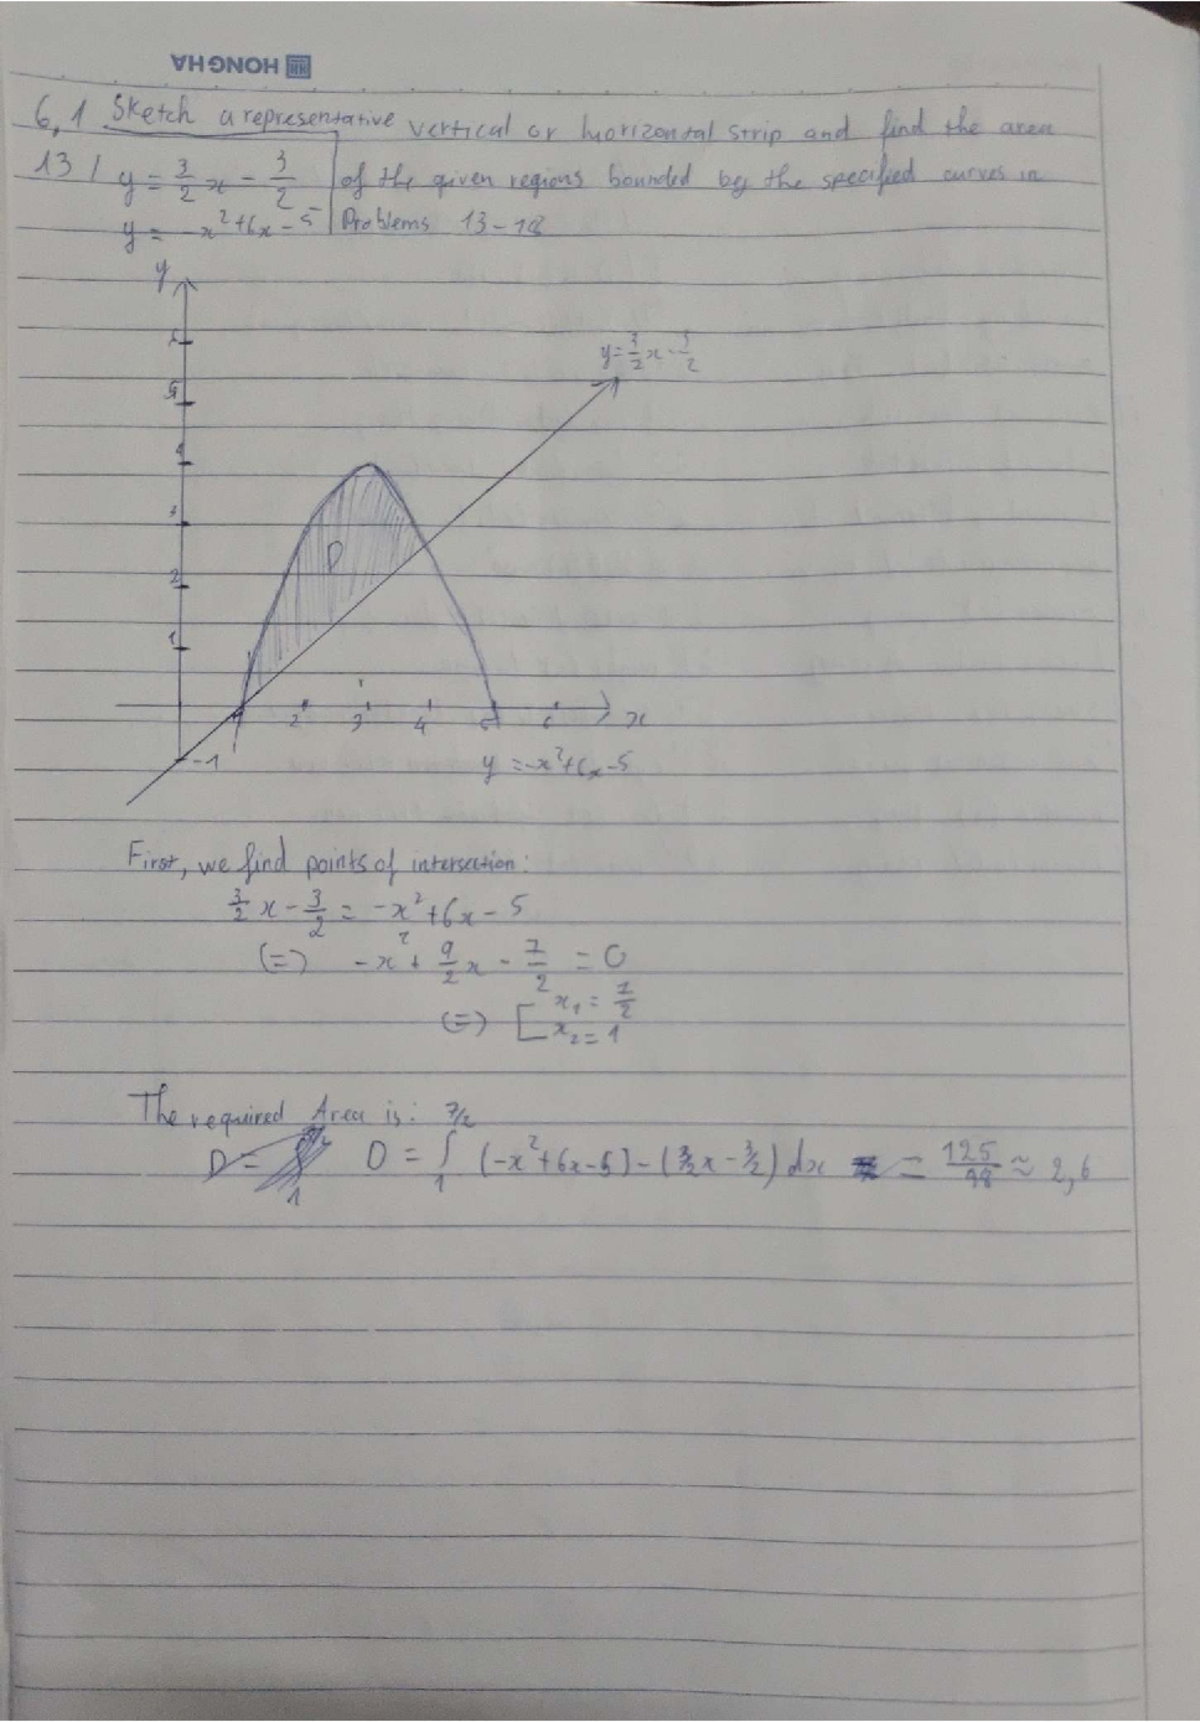 HONG HA
6,1 Sketch a representative vertical or horizontal strip and find the area
13 / y = 3/2 x - 3/2 | of the given regions bounded by the specified curves in
y = -x² + 6x - 5 | Problems 13-18
y
5
4
3
2
1
y = 3/2 x - 3/2
D
2 3 4 5 6 x
-1
y = -x² + 6x - 5
First, we find points of intersection:
3/2 x - 3/2 = -x² + 6x - 5
(=) -x² + 9/2 x - 7/2 = 0
(=) [ x₁ = 7/2
x₂ = 1
The required Area is:
D = ∫₁^7/2 (-x² + 6x - 5) - (3/2 x - 3/2) dx = 125/48 ≈ 2,6